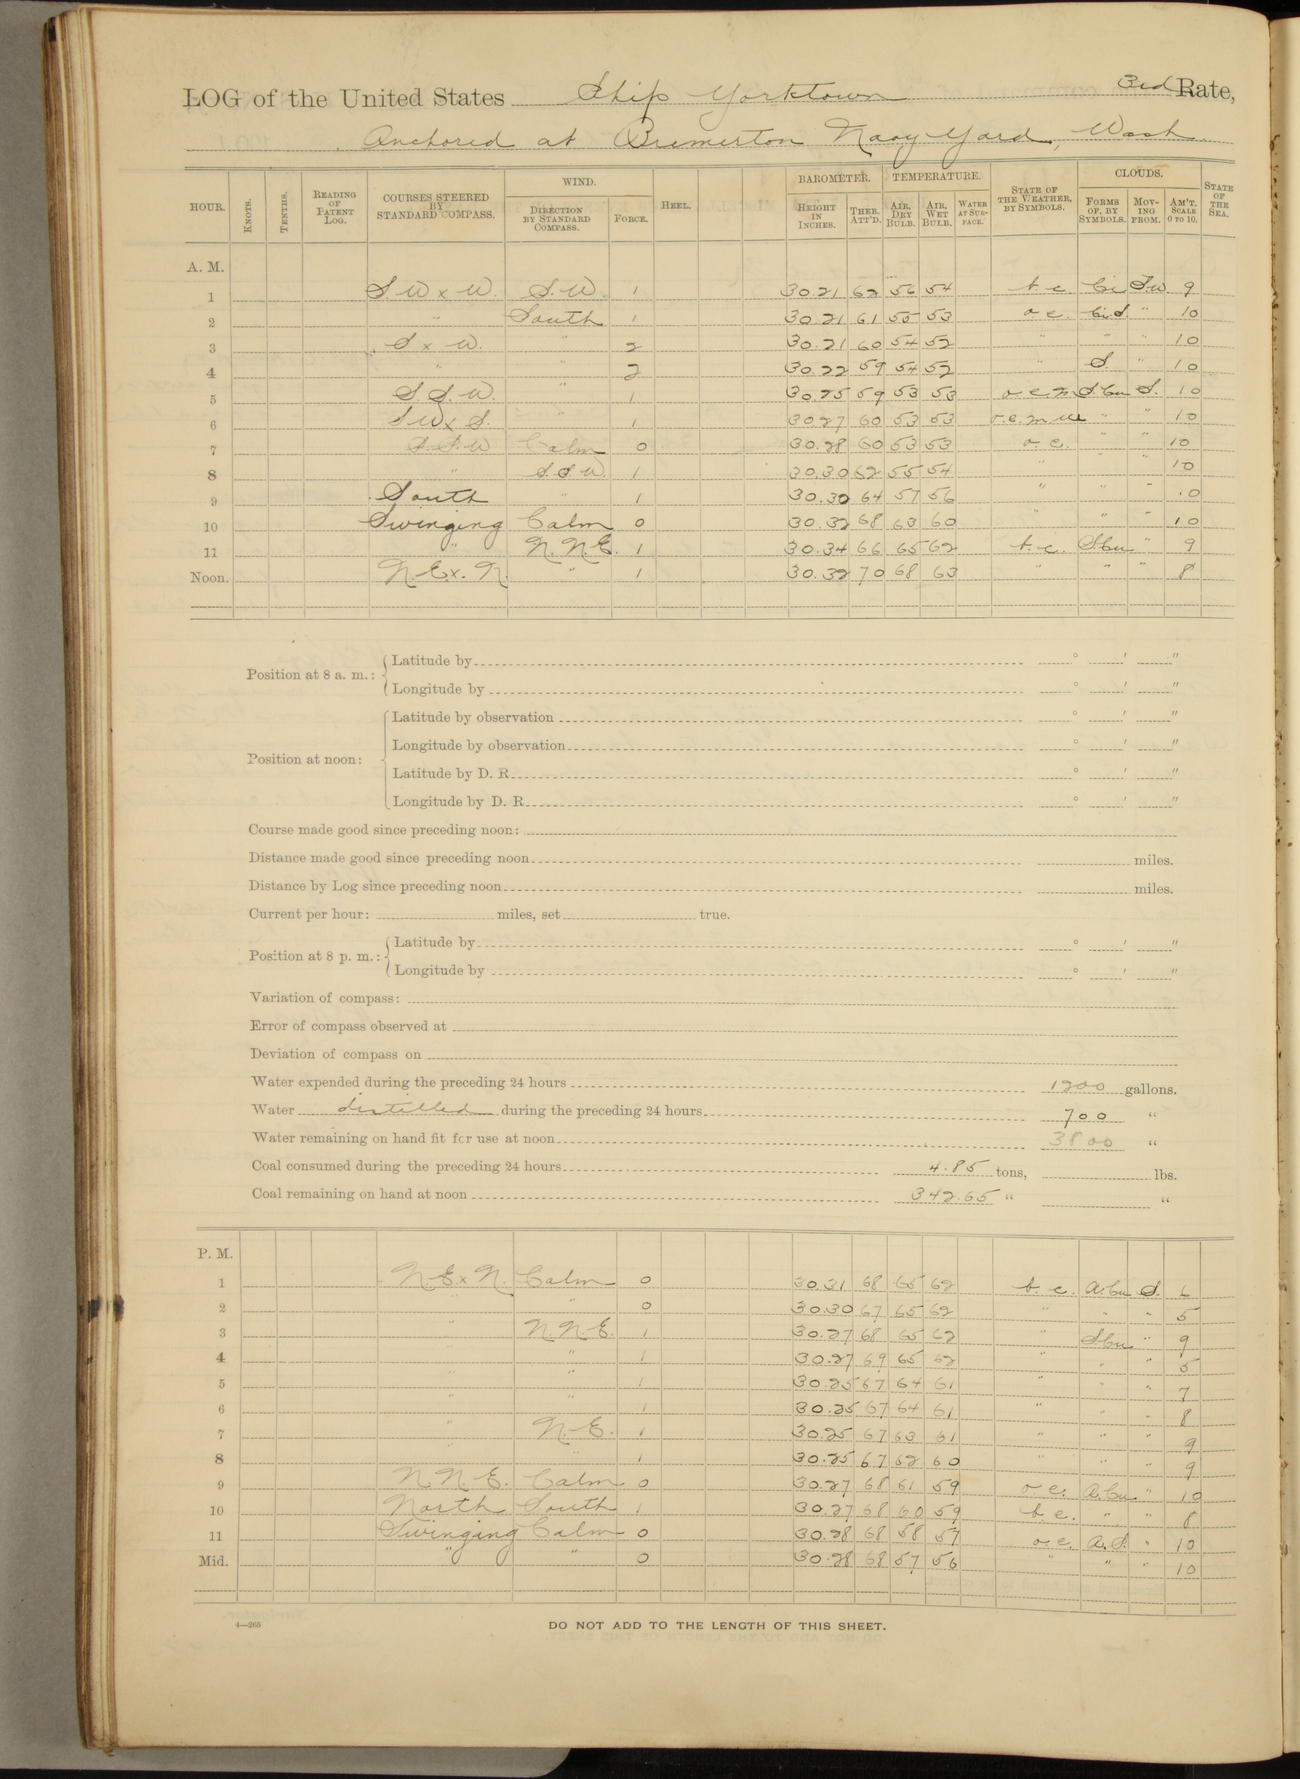 LOG of the United States Ship Yorktown 3rd Rate,
Anchored at Bremerton Navy Yard, Wash
HOUR. KNOTS. TENTHS. READING OF PATENT LOG. COURSES STEERED BY STANDARD COMPASS. WIND. DIRECTION BY STANDARD COMPASS. FORCE. HEEL. BAROMETER. HEIGHT IN INCHES. THER. ATT'D. TEMPERATURE. AIR, DRY BULB. AIR, WET BULB. WATER AT SURFACE. STATE OF THE WEATHER, BY SYMBOLS. CLOUDS. FORMS OF, BY SYMBOLS. MOVING FROM. AM'T. SCALE 0 TO 10. STATE OF THE SEA.
A. M.
1 S W x W. S. W. 1 30.21 62 56 54 b c Ci S W 9
2 " South 1 30.21 61 55 53 o c. Ci. S. " 10
3 S x W. " 2 30.21 60 54 52 " " " 10
4 " " 2 30.22 59 54 52 " S. " 10
5 S S. W. " 1 30.25 59 53 53 o. c. m S. Cu S. 10
6 S W x S. " 1 30.27 60 53 53 o. c. m " " 10
7 S. S. W Calm 0 30.28 60 53 53 o. c. " " 10
8 " S. S. W. 1 30.30 62 55 54 " " " 10
9 South " 1 30.30 64 57 56 " " " 10
10 Swinging Calm 0 30.32 68 63 60 " " " 10
11 " N. N. E. 1 30.34 66 65 62 b. c. S. Cu " 9
Noon. N. E x. N. " 1 30.32 70 68 63 " " " 8
Position at 8 a. m.: Latitude by ° ' "
Longitude by ° ' "
Position at noon: Latitude by observation ° ' "
Longitude by observation ° ' "
Latitude by D. R. ° ' "
Longitude by D. R. ° ' "
Course made good since preceding noon:
Distance made good since preceding noon miles.
Distance by Log since preceding noon miles.
Current per hour: miles, set true.
Position at 8 p. m.: Latitude by ° ' "
Longitude by ° ' "
Variation of compass:
Error of compass observed at
Deviation of compass on
Water expended during the preceding 24 hours 1200 gallons.
Water distilled during the preceding 24 hours 700 "
Water remaining on hand fit for use at noon 3800 "
Coal consumed during the preceding 24 hours 4.85 tons, lbs.
Coal remaining on hand at noon 342.65 " "
P. M.
1 N. E x N. Calm 0 30.31 68 65 62 b. c. A. Cu S. 6
2 " " 0 30.30 67 65 62 " " " 5
3 " N. N. E. 1 30.27 68 65 62 " S. Cu " 9
4 " " 1 30.27 69 65 62 " " " 5
5 " " 1 30.25 67 64 61 " " " 7
6 " " 1 30.25 67 64 61 " " " 8
7 " N. E. 1 30.25 67 63 61 " " " 9
8 " " 1 30.25 67 62 60 " " " 9
9 N. N. E. Calm 0 30.27 68 61 59 o c. A. Cu " 10
10 North South 1 30.27 68 60 59 b. c. " " 8
11 Swinging Calm 0 30.28 68 58 57 o c. A. S. " 10
Mid. " " 0 30.28 68 57 56 " " " 10
4—265 DO NOT ADD TO THE LENGTH OF THIS SHEET.